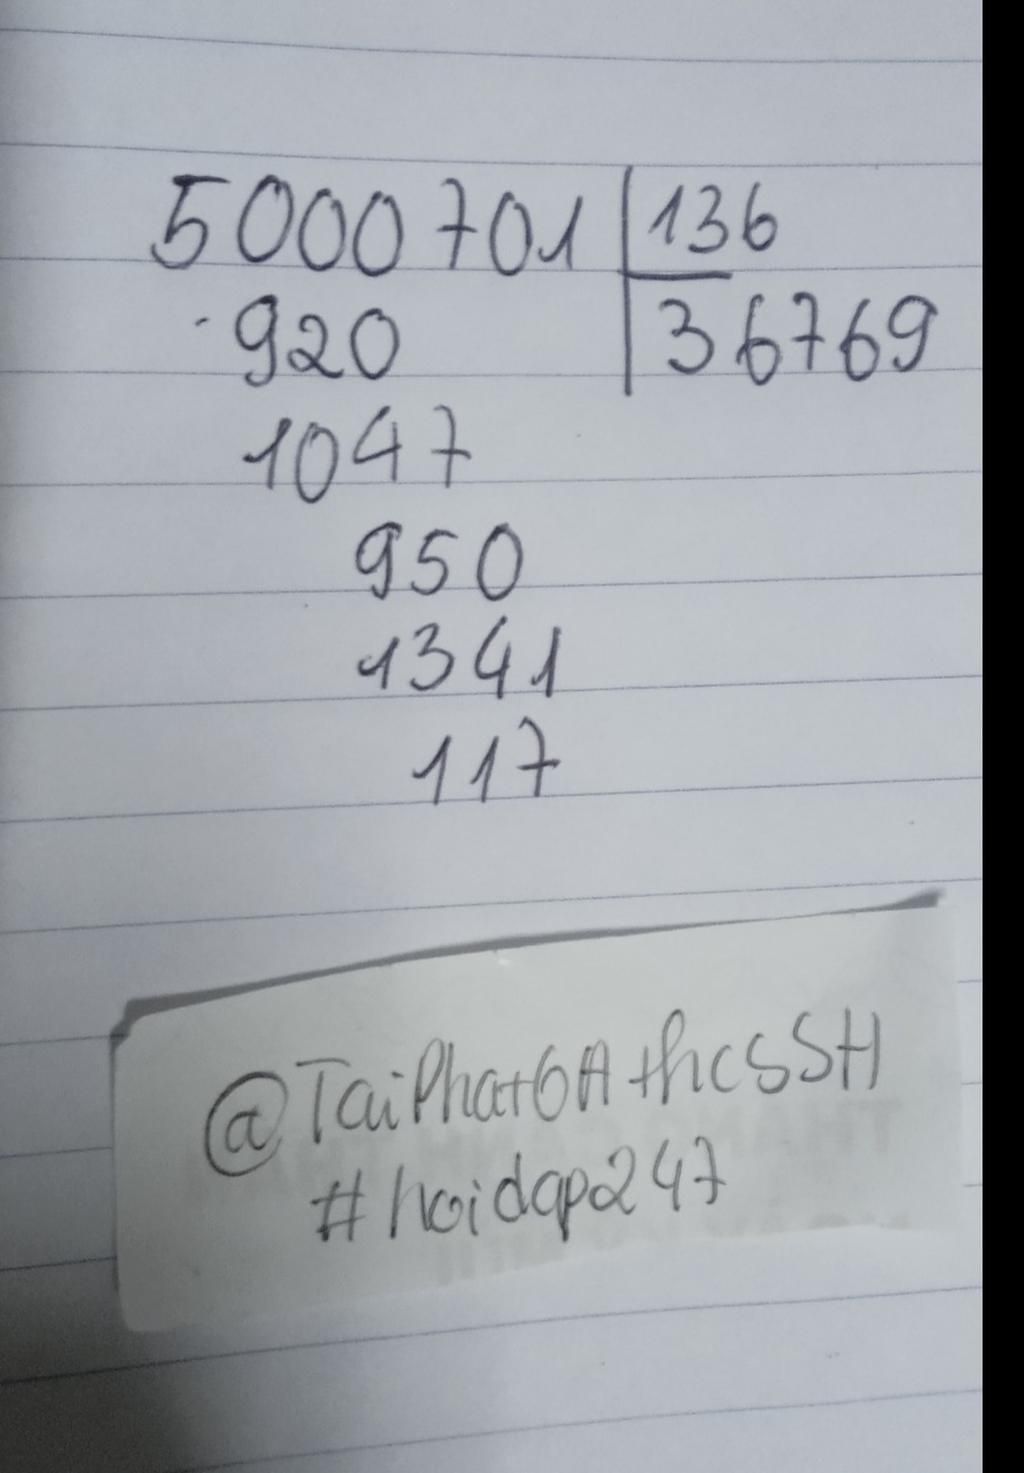 5000701 136
920 36769
1047
950
1341
117
@TaiPhat6AthcsSH
#hoidap247